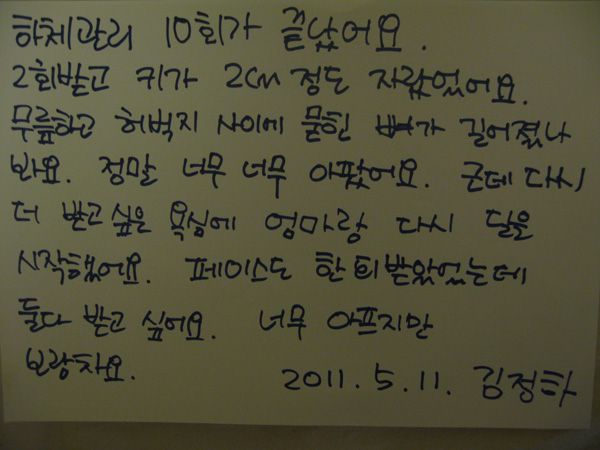 하체관리 10회가 끝났어요.
2회받고 키가 2cm 정도 자랐었어요.
무릎하고 허벅지 사이에 묻힌 뼈가 길어졌나
봐요. 정말 너무 너무 아팠어요. 근데 다시
더 받고 싶은 욕심에 엄마랑 다시 달을
시작했어요. 페이스도 한 회 받았었는데
둘다 받고 싶어요. 너무 아프지만
보람차요.
2011. 5. 11. 김정화